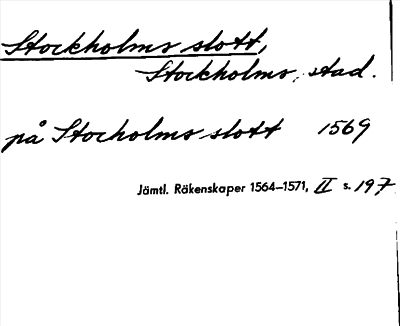 Stockholms slott,
Stockholms, stad.
på Stocholms slott 1569
Jämtl. Räkenskaper 1564–1571, II s. 197